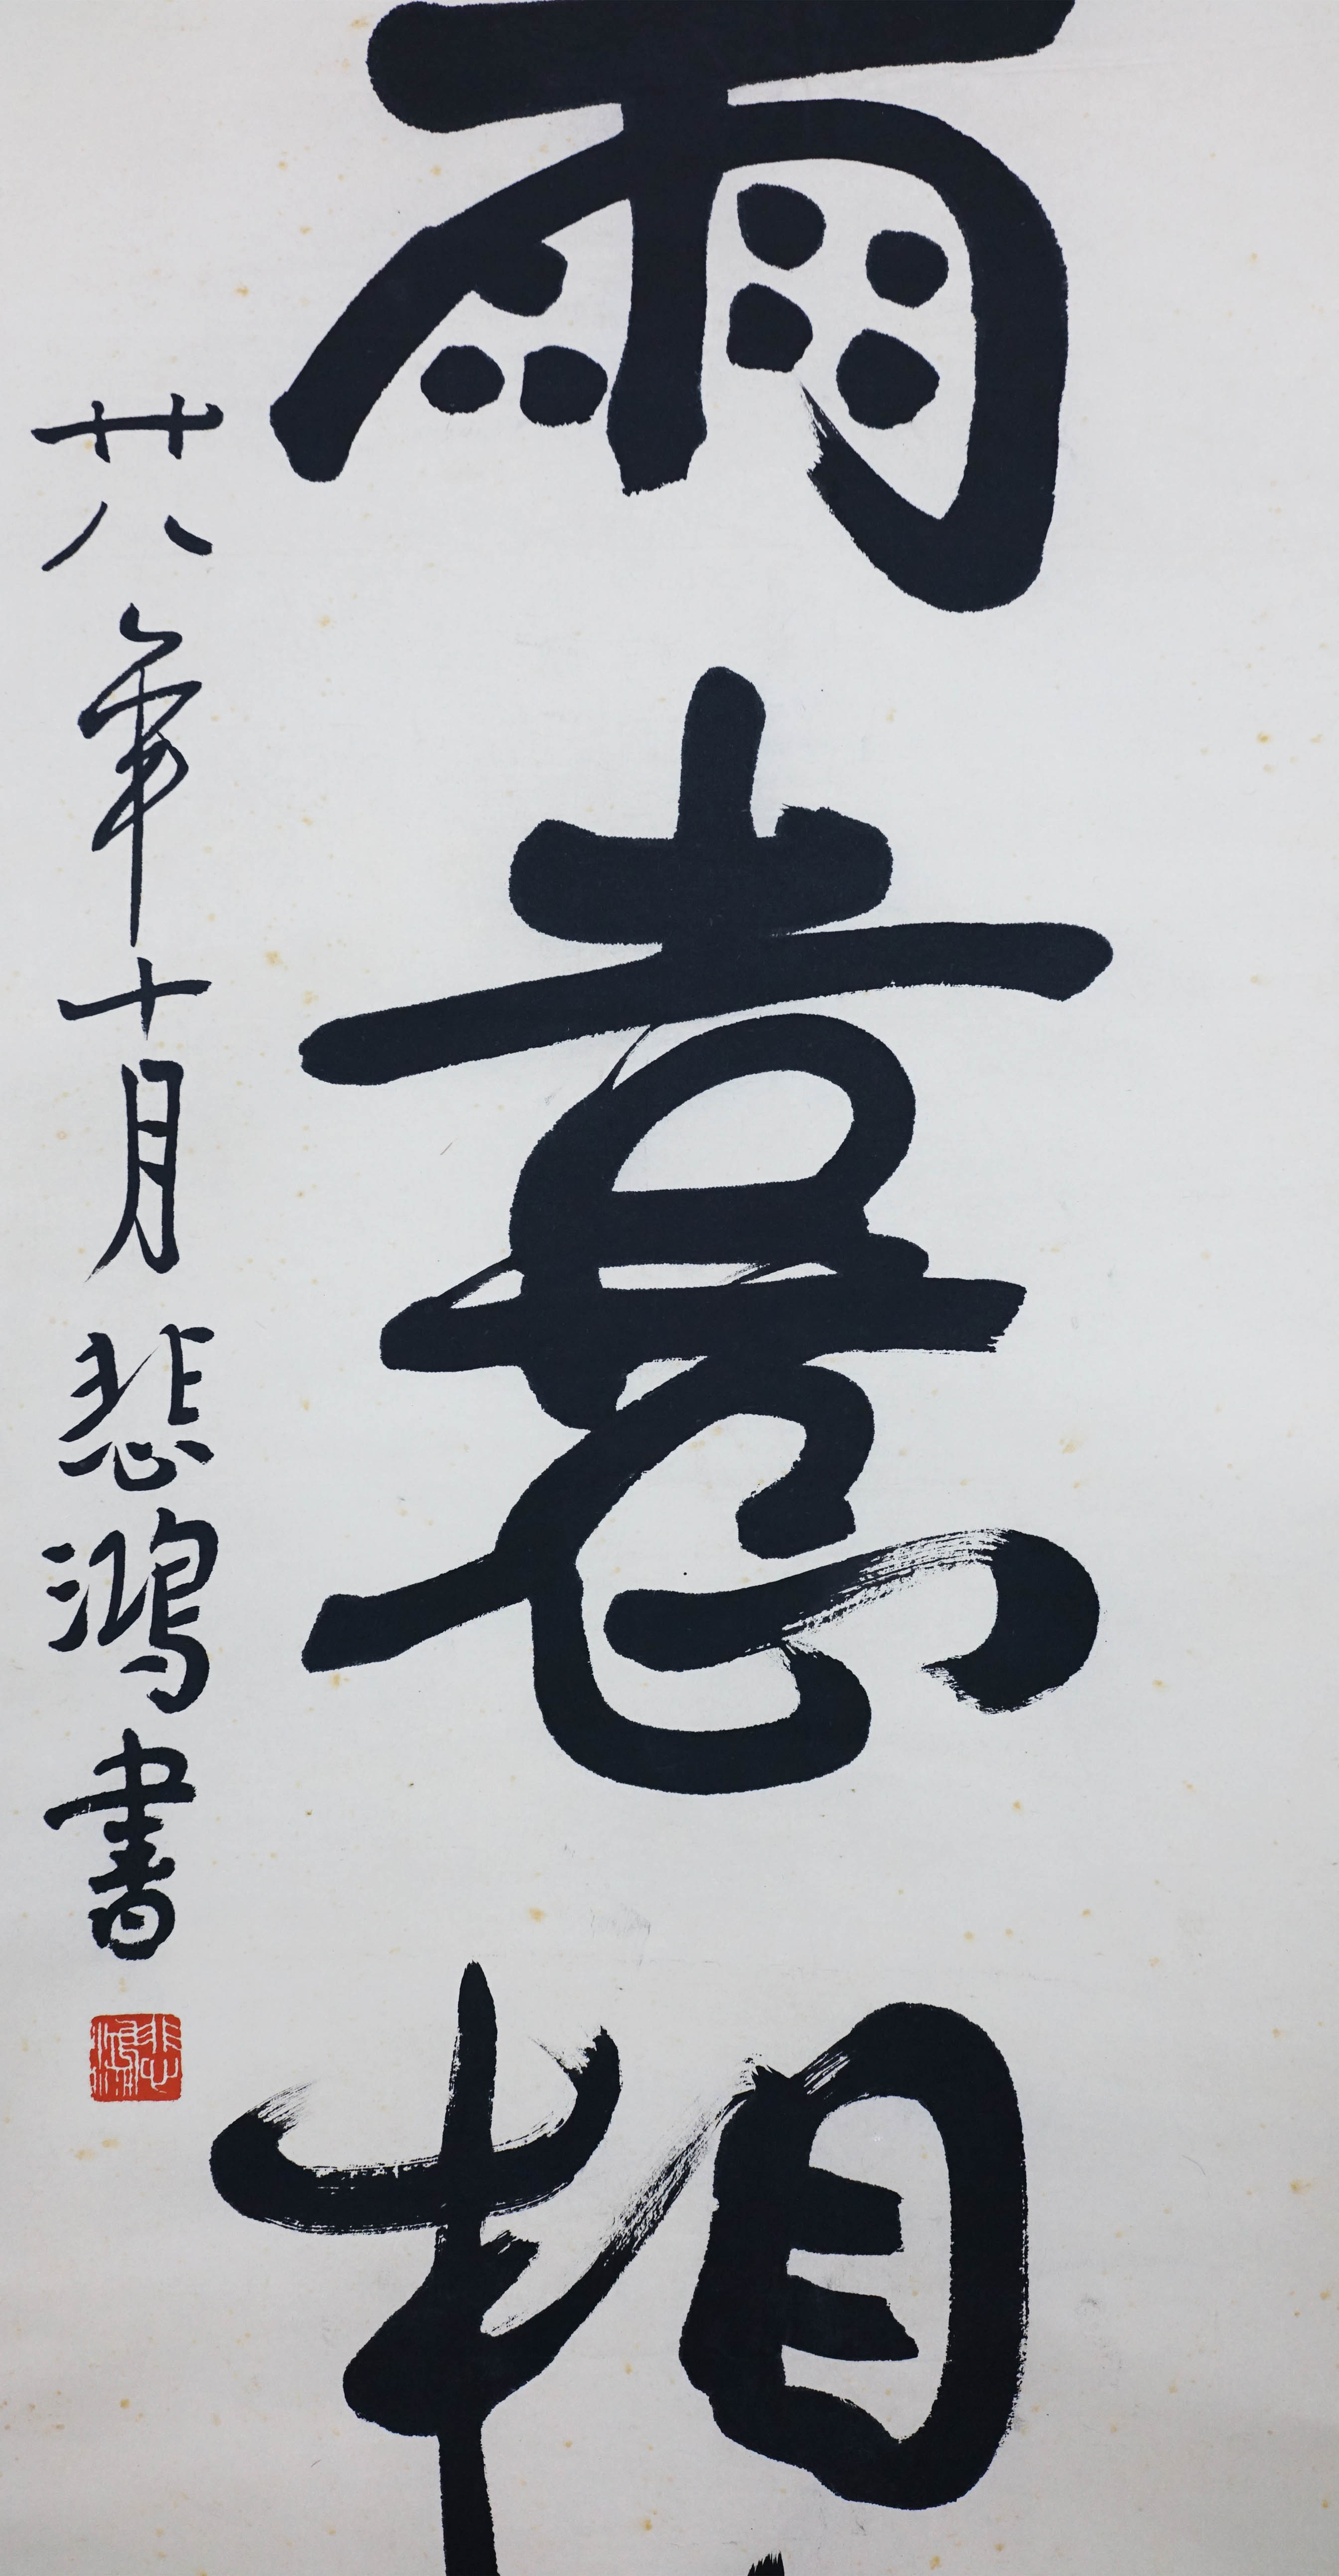 雨憙相
廿八年十月悲鴻書
悲鴻